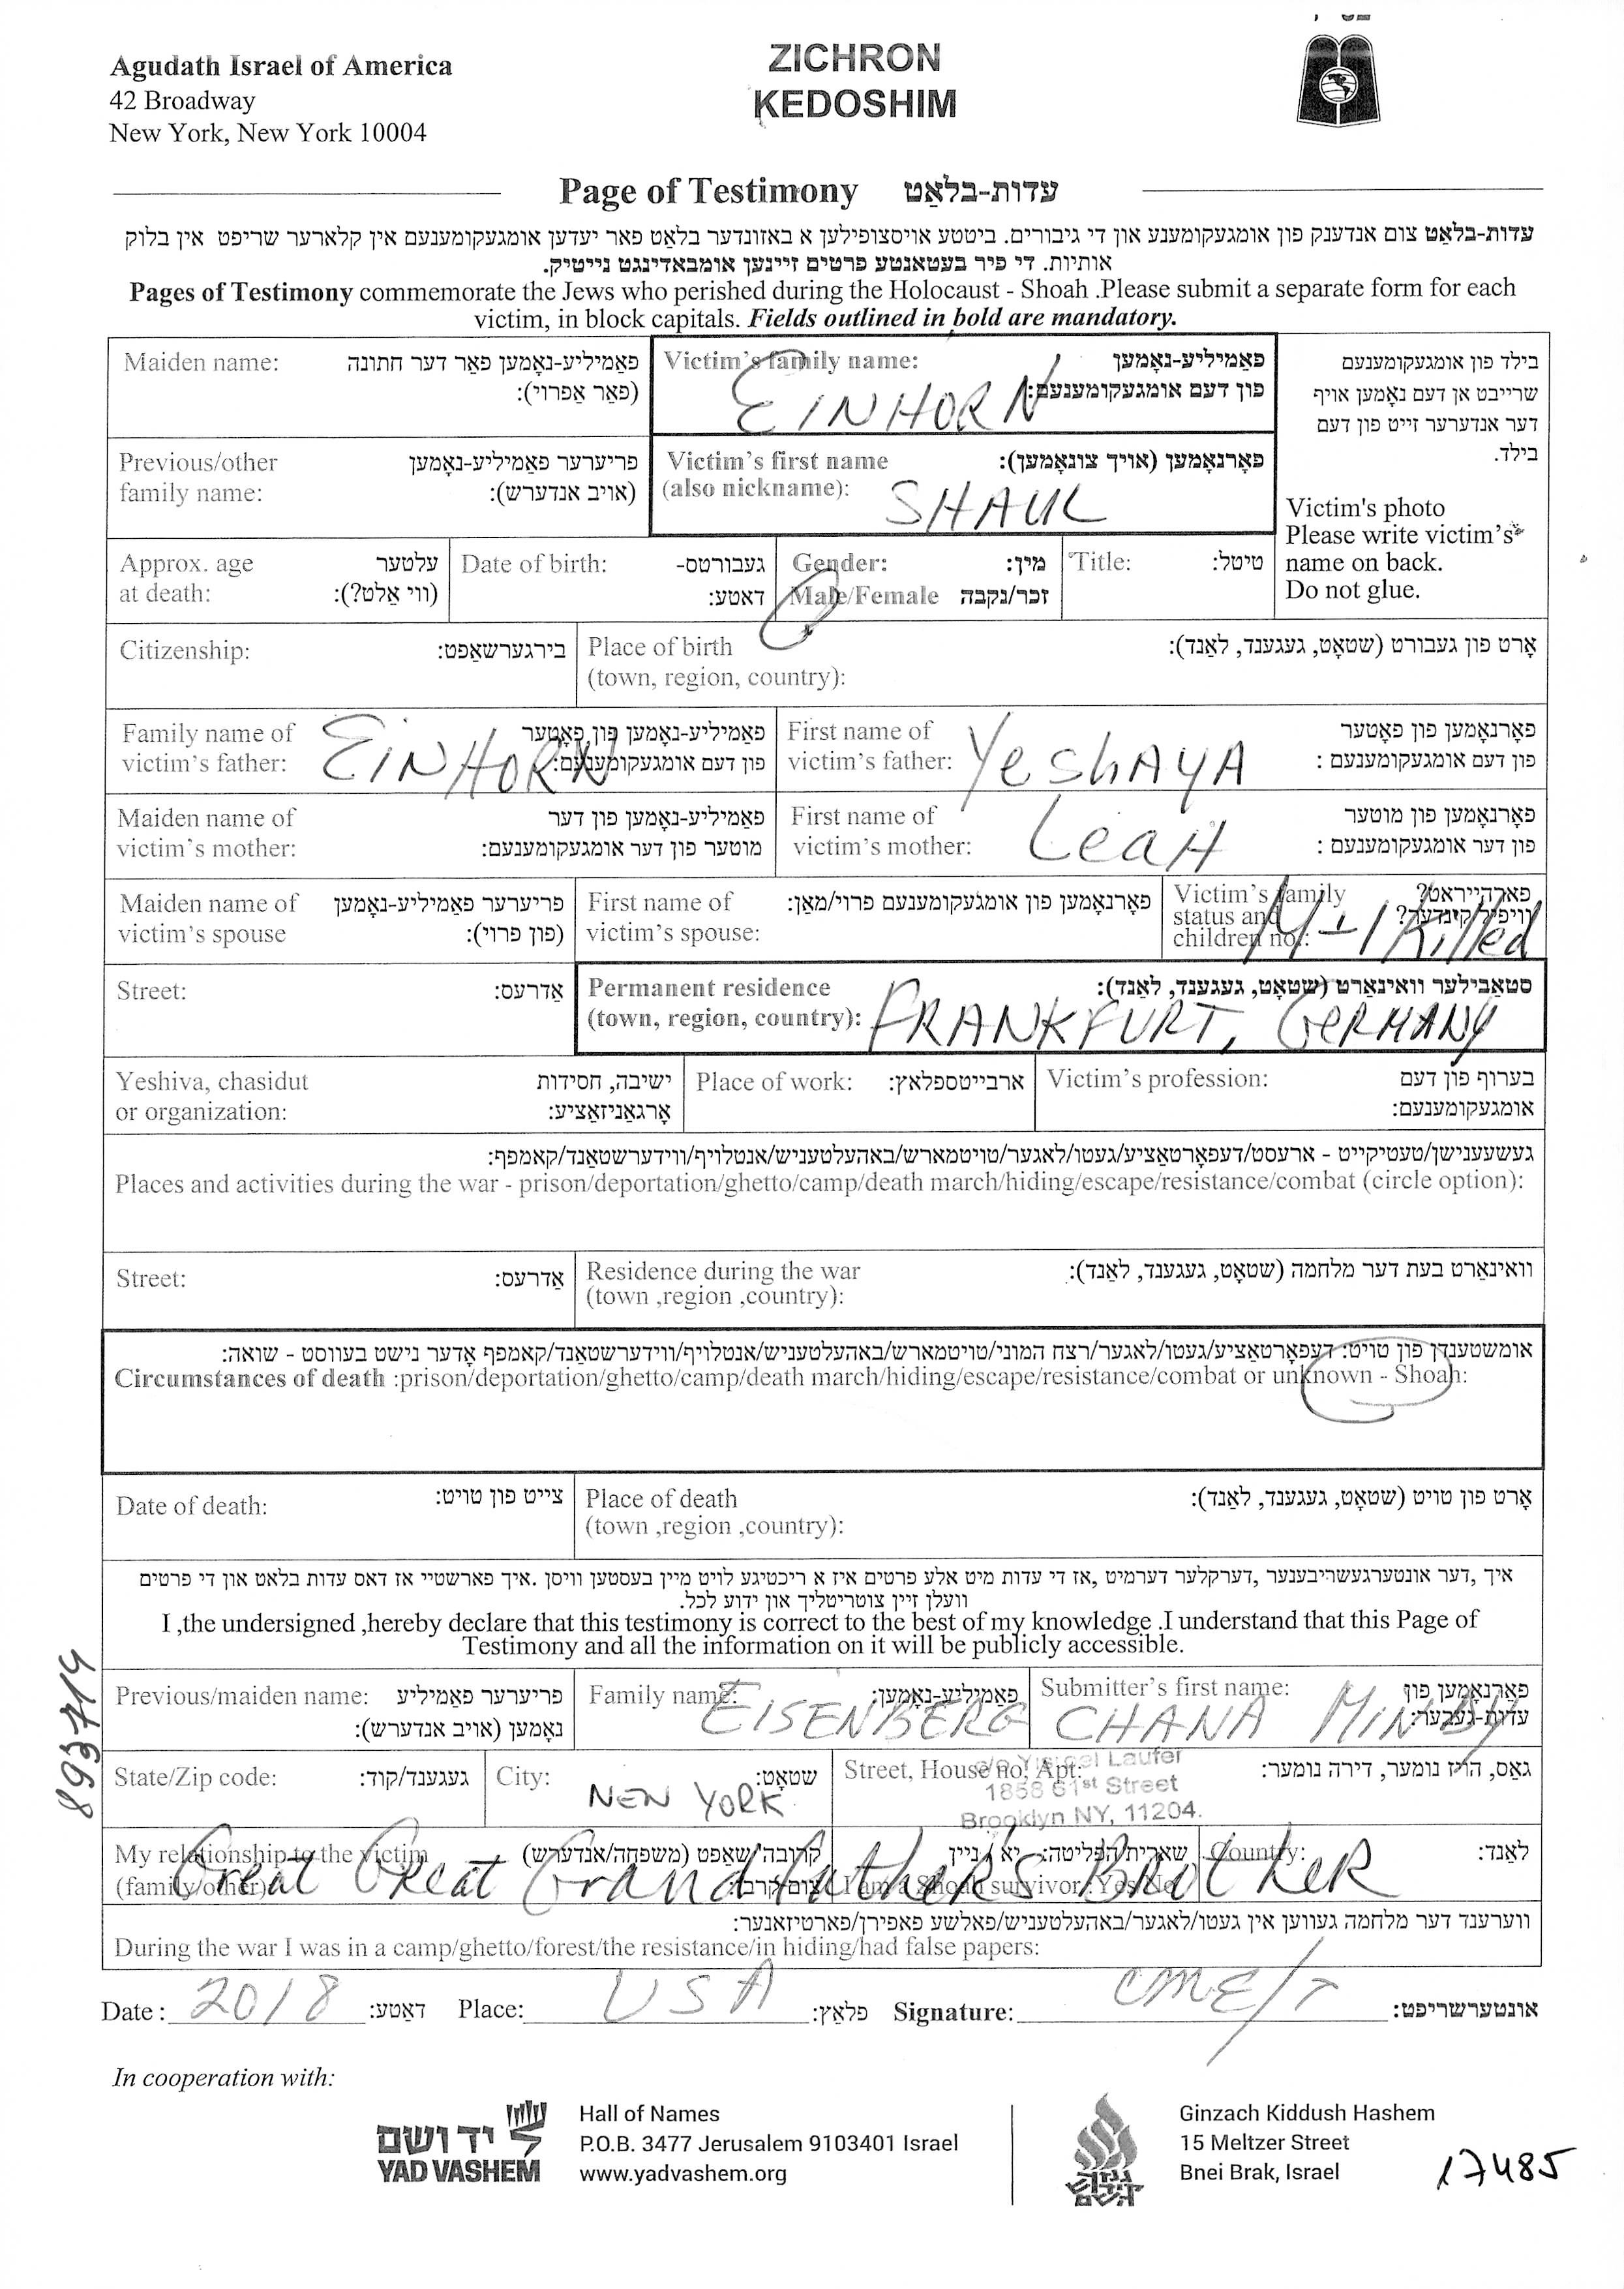 Agudath Israel of America
42 Broadway
New York, New York 10004
ZICHRON
KEDOSHIM
Page of Testimony עדות-בלאַט
עדות-בלאַט צום אנדענק פון אומגעקומענע און די גיבורים. ביטטע אויסצופילען א באזונדער בלאַט פאר יעדען אומגעקומענעם אין קלארער שריפט אין בלוק
אותיות. די פיר בעטאנטע פרטים זיינען אומבאדינגט נייטיק.
Pages of Testimony commemorate the Jews who perished during the Holocaust - Shoah .Please submit a separate form for each
victim, in block capitals. Fields outlined in bold are mandatory.
Maiden name: פאַמיליע-נאָמען פאַר דער חתונה
(פאַר אַפרוי):
Victim's family name: פאַמיליע-נאָמען
פון דעם אומגעקומענעם:
EINHORN
Previous/other פריערער פאַמיליע-נאָמען
family name: (אויב אנדערש):
Victim's first name פאָרנאָמען (אויך צונאָמען):
(also nickname):
SHAUL
בילד פון אומגעקומענעם
שרייבט אן דעם נאָמען אויף
דער אנדערער זייט פון דעם
בילד.
Victim's photo
Please write victim's
name on back.
Do not glue.
Approx. age עלטער
at death: (ווי אַלט?):
Date of birth: געבורטס-
דאַטע:
Gender: מין:
Male/Female זכר/נקבה
Title: טיטל:
Citizenship: בירגערשאַפט:
Place of birth אָרט פון געבורט (שטאָט, געגענד, לאַנד):
(town, region, country):
Family name of פאַמיליע-נאָמען פון פאָטער
victim's father: פון דעם אומגעקומענעם:
EINHORN
First name of פאָרנאָמען פון פאָטער
victim's father: פון דעם אומגעקומענעם :
YeshAYA
Maiden name of פאַמיליע-נאָמען פון דער
victim's mother: מוטער פון דער אומגעקומענעם:
First name of פאָרנאָמען פון מוטער
victim's mother: פון דער אומגעקומענעם :
LeaH
Maiden name of פריערער פאַמיליע-נאָמען
victim's spouse (פון פרוי):
First name of פאָרנאָמען פון אומגעקומענעם פרוי/מאַן:
victim's spouse:
Victim's family פארהייראט?
status and וויפיל קינדער?
children no.:
killed
Street: אַדרעס:
Permanent residence סטאַבילער וואינאָרט (שטאָט, געגענד, לאַנד):
(town, region, country):
FRANKFURT, GeRMANY
Yeshiva, chasidut ישיבה, חסידות
or organization: אָרגאַניזאַציע:
Place of work: ארבייטספלאץ:
Victim's profession: בערוף פון דעם
אומגעקומענעם:
געשעענישן/טעטיקייט - ארעסט/דעפאָרטאַציע/געטו/לאגער/טויטמארש/באהעלטעניש/אנטלויף/ווידערשטאַנד/קאמפף:
Places and activities during the war - prison/deportation/ghetto/camp/death march/hiding/escape/resistance/combat (circle option):
Street: אַדרעס:
Residence during the war וואינאָרט בעת דער מלחמה (שטאָט, געגענד, לאַנד):
(town ,region ,country):
אומשטענדן פון טויט: דעפאָרטאַציע/געטו/לאגער/רצח המוני/טויטמארש/באהעלטעניש/אנטלויף/ווידערשטאַנד/קאמפף אָדער נישט בעוווסט - שואה:
Circumstances of death :prison/deportation/ghetto/camp/death march/hiding/escape/resistance/combat or unknown - Shoah:
Date of death: צייט פון טויט:
Place of death אָרט פון טויט (שטאָט, געגענד, לאַנד):
(town ,region ,country):
איך ,דער אונטערגעשריבענער ,דערקלער דערמיט ,אז די עדות מיט אלע פרטים איז א ריכטיגע לויט מיין בעסטען וויסן .איך פארשטיי אז דאס עדות בלאט און די פרטים
וועלן זיין צוטריטליך און ידוע לכל.
I ,the undersigned ,hereby declare that this testimony is correct to the best of my knowledge .I understand that this Page of
Testimony and all the information on it will be publicly accessible.
893714
Previous/maiden name: פריערער פאַמיליע
נאָמען (אויב אנדערש):
Family name: פאַמיליע-נאָמען:
EISENBERG
Submitter's first name: פאָרנאָמען פון
עדות-געבער:
CHANA MINDY
State/Zip code: געגענד/קוד:
City: שטאָט:
NEW YORK
Street, House no. Apt: גאַס, הויז נומער, דירה נומער:
c/o Yisroel Laufer
1858 61st Street
Brooklyn NY, 11204.
My relationship to the victim קרובה'שאַפט (משפחה/אנדערש)
(family/other) צום קרבן:
שארית הפליטה: יא / ניין
I am a Shoah survivor :Yes/No
Country: לאַנד:
Great Great Grandfather's Brother
ווערענד דער מלחמה געווען אין געטו/לאגער/באהעלטעניש/פאלשע פאפירן/פארטיזאנער:
During the war I was in a camp/ghetto/forest/the resistance/in hiding/had false papers:
Date : 2018 דאַטע: Place: USA פלאַץ: Signature: CME/T אונטערשריפט:
In cooperation with:
יד ושם
YAD VASHEM
Hall of Names
P.O.B. 3477 Jerusalem 9103401 Israel
www.yadvashem.org
Ginzach Kiddush Hashem
15 Meltzer Street
Bnei Brak, Israel
17485